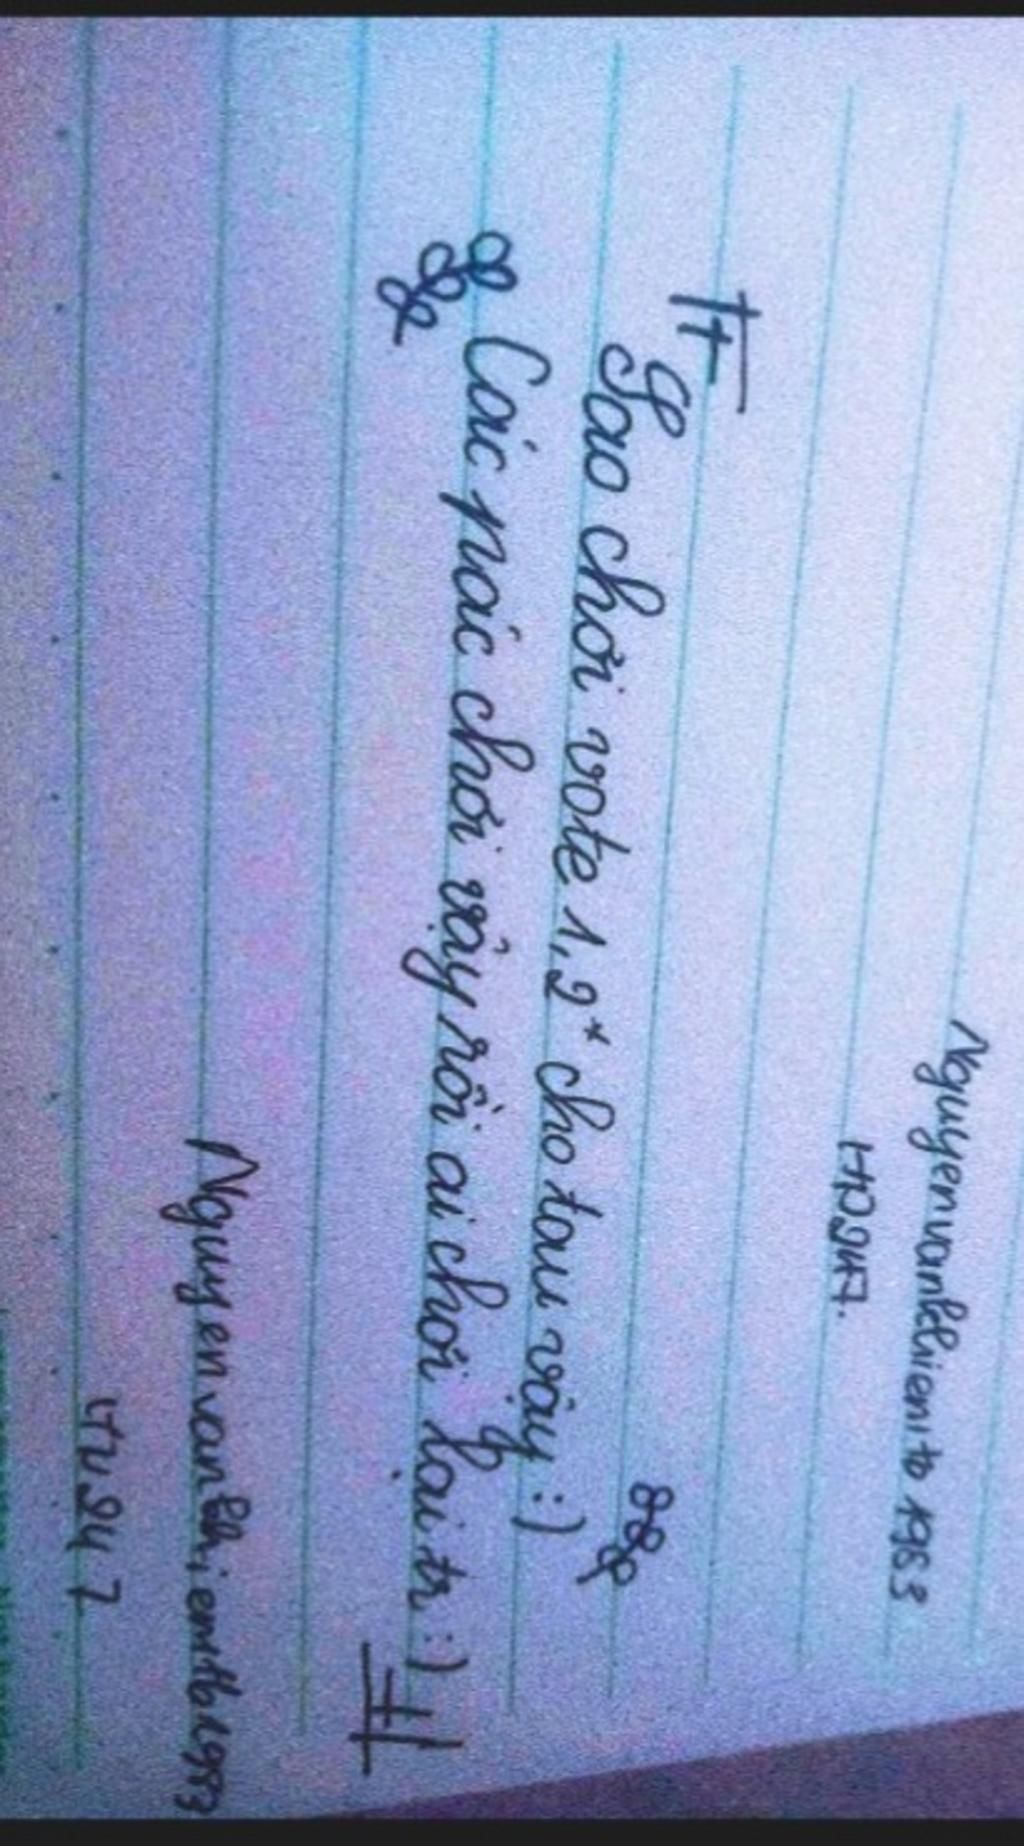 Nguyenvanthienito 1983
HD947.
Sao chơi vote 1,2* cho tau vậy :)
Các nác chơi vậy rồi ai chơi lại tr :)
Nguyenvanthienito1983